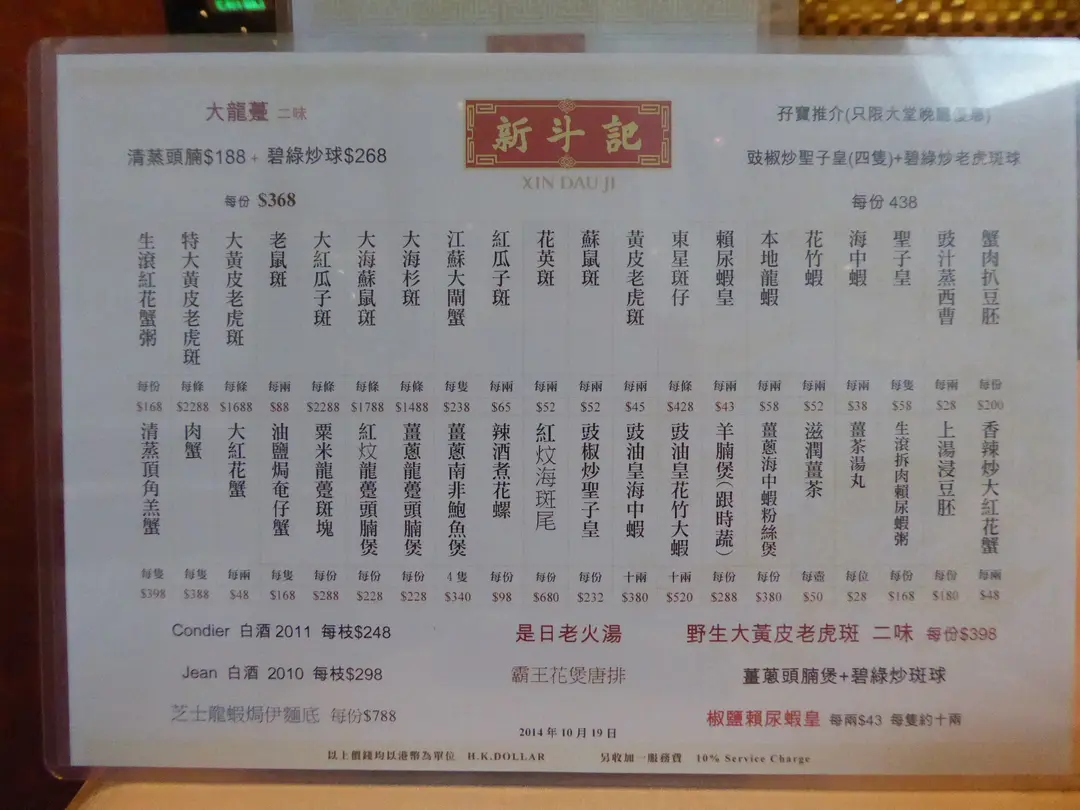 大龍躉 二味
清蒸頭腩$188+ 碧綠炒球$268
每份 $368
新斗記
XIN DAU JI
孖寶推介(只限大堂晚
豉椒炒聖子皇(四隻)+碧綠炒老虎斑球
每份 438
蟹肉扒豆胚 每份 $200
豉汁蒸西曹 每兩 $28
聖子皇 每隻 $58
海中蝦 每兩 $38
花竹蝦 每兩 $52
本地龍蝦 每兩 $58
賴尿蝦皇 每兩 $43
東星斑仔 每條 $428
黃皮老虎斑 每兩 $45
蘇鼠斑 每兩 $52
花英斑 每兩 $52
紅瓜子斑 每兩 $65
江蘇大閘蟹 每隻 $238
大海杉斑 每條 $1488
大海蘇鼠斑 每條 $1788
大紅瓜子斑 每條 $2288
老鼠斑 每兩 $88
大黃皮老虎斑 每條 $1688
特大黃皮老虎斑 每條 $2288
生滾紅花蟹粥 每份 $168
香辣炒大紅花蟹 每兩 $48
上湯浸豆胚 每份 $180
生滾拆肉賴尿蝦粥 每份 $168
薑茶湯丸 每位 $28
滋潤薑茶 每壺 $50
薑蔥海中蝦粉絲煲 每份 $380
羊腩煲(跟時蔬) 每份 $288
豉油皇花竹大蝦 十兩 $520
豉油皇海中蝦 十兩 $380
豉椒炒聖子皇 每份 $232
紅炆海斑尾 每份 $680
辣酒煮花螺 每份 $98
薑蔥南非鮑魚煲 4隻 $340
薑蔥龍躉頭腩煲 每份 $228
紅炆龍躉頭腩煲 每份 $228
粟米龍躉斑塊 每份 $288
油鹽焗奄仔蟹 每隻 $168
大紅花蟹 每兩 $48
肉蟹 每隻 $388
清蒸頂角羔蟹 每隻 $398
Condier 白酒 2011 每枝$248
Jean 白酒 2010 每枝$298
芝士龍蝦焗伊麵底 每份$788
是日老火湯
霸王花煲唐排
野生大黃皮老虎斑 二味 每份$398
薑蔥頭腩煲+碧綠炒斑球
椒鹽賴尿蝦皇 每兩$43 每隻約十兩
2014 年 10 月 19 日
以上價錢均以港幣為單位 H.K.DOLLAR 另收加一服務費 10% Service Charge